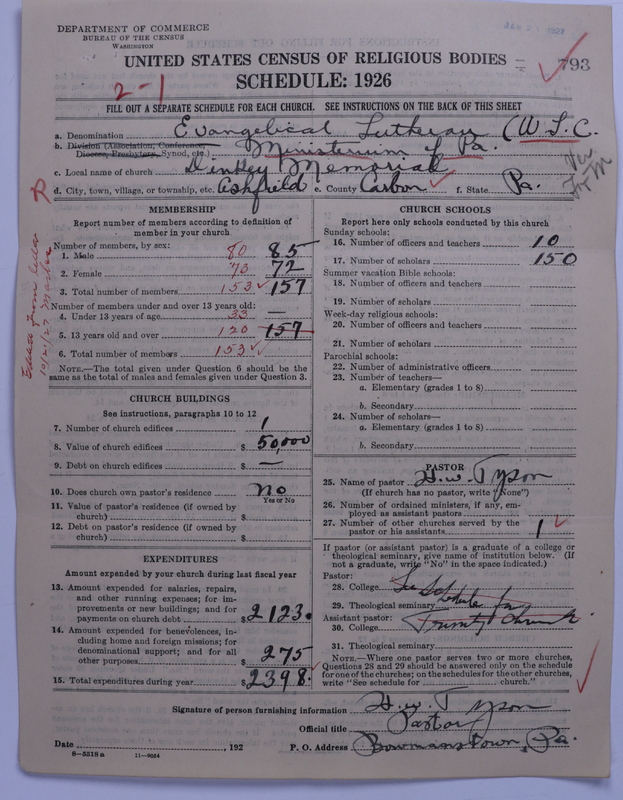 DEPARTMENT OF COMMERCE
BUREAU OF THE CENSUS
WASHINGTON
UNITED STATES CENSUS OF RELIGIOUS BODIES
793
SCHEDULE: 1926
2-1
FILL OUT A SEPARATE SCHEDULE FOR EACH CHURCH. SEE INSTRUCTIONS ON THE BACK OF THIS SHEET
a. Denomination Evangelical Lutheran (
b. Division (Association, Conference, Diocese, Presbytery, Synod, etc.) Ministerium of Pa.
c. Local name of church Dinkey Memorial
d. City, town, village, or township, etc. Ashfield e. County Carbon f. State Pa.
MEMBERSHIP
Report number of members according to definition of
member in your church
Number of members, by sex:
1. Male 80 85
2. Female 73 72
3. Total number of members 153 157
Number of members under and over 13 years old:
4. Under 13 years of age 33 —
5. 13 years old and over 120 157
6. Total number of members 153
NOTE.—The total given under Question 6 should be
same as the total of males and females given under Question 3.
CHURCH BUILDINGS
See instructions, paragraphs 10 to 12
7. Number of church edifices 1
8. Value of church edifices $ 50,000
9. Debt on church edifices $ —
10. Does church own pastor's residence No
Yes or No
11. Value of pastor's residence (if owned by
church) $
12. Debt on pastor's residence (if owned by
church) $
EXPENDITURES
Amount expended by your church during last fiscal year
13. Amount expended for salaries, repairs,
and other running expenses; for im-
provements or new buildings; and for
payments on church debt $ 2123.
14. Amount expended for benevolences, in-
cluding home and foreign missions; for
denominational support; and for all
other purposes $ 275
15. Total expenditures during year $ 2398.
CHURCH SCHOOLS
Report here only schools conducted by this church
Sunday schools:
16. Number of officers and teachers 10
17. Number of scholars 150
Summer vacation Bible schools:
18. Number of officers and teachers
19. Number of scholars
Week-day religious schools:
20. Number of officers and teachers
21. Number of scholars
Parochial schools:
22. Number of administrative officers
23. Number of teachers—
a. Elementary (grades 1 to 8)
b. Secondary
24. Number of scholars—
a. Elementary (grades 1 to 8)
b. Secondary
PASTOR
25. Name of pastor H. W. Tyson
(If church has no pastor, write "None")
26. Number of ordained ministers, if any, em-
ployed as assistant pastors
27. Number of other churches served by the
pastor or his assistants 1
If pastor (or assistant pastor) is a graduate of a college or
theological seminary, give name of institution below. (If
not a graduate, write "No" in the space indicated.)
Pastor:
28. College See Schedule for
29. Theological seminary
Assistant pastor: Trinity Church
30. College
31. Theological seminary
NOTE.—Where one pastor serves two or more churches,
Questions 28 and 29 should be answered only on the schedule
for one of the churches; on the schedules for the other churches,
write "See schedule for church."
Signature of person furnishing information H. W. Tyson
Official title Pastor
Date , 192 P. O. Address Bowmanstown, Pa.
8—5518 a 11—9064